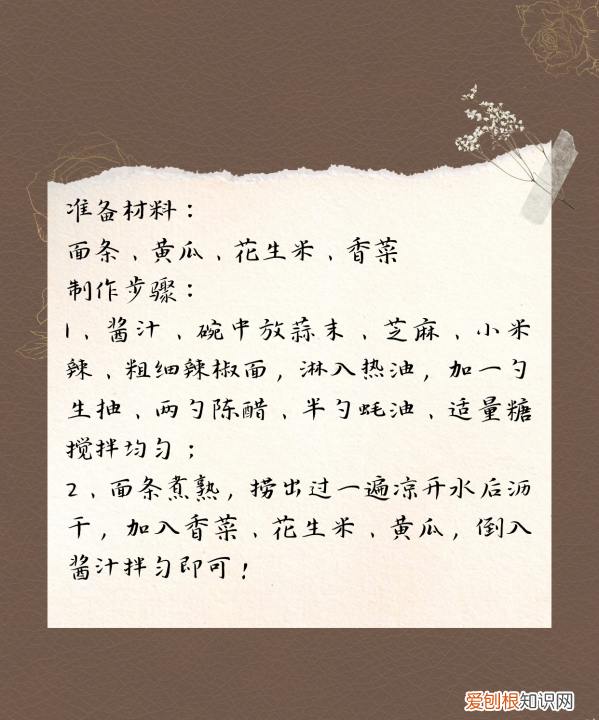 准备材料：
面条、黄瓜、花生米、香菜
制作步骤：
1、酱汁、碗中放蒜末、芝麻、小米
辣、粗细辣椒面，淋入热油，加一勺
生抽、两勺陈醋、半勺蚝油、适量糖
搅拌均匀；
2、面条煮熟，捞出过一遍凉开水后沥
干，加入香菜、花生米、黄瓜，倒入
酱汁拌匀即可！
爱刨根知识网